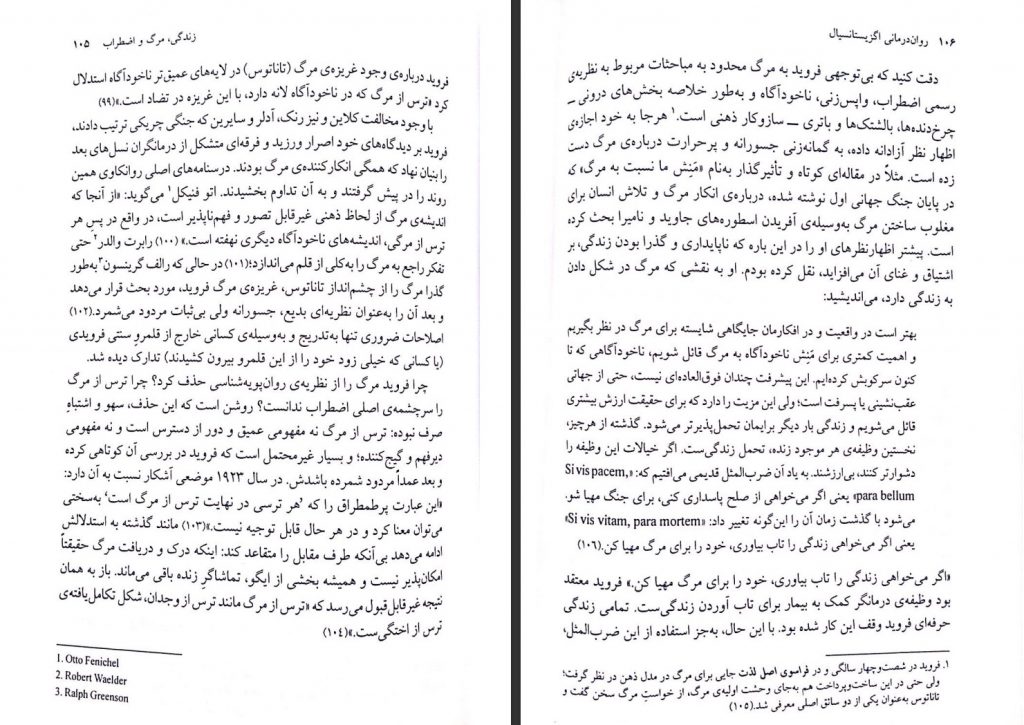 زندگی، مرگ و اضطراب ۱۰۵
فروید درباره‌ی وجود غریزه‌ی مرگ (تاناتوس) در لایه‌های عمیق‌تر ناخودآگاه استدلال
کرد «ترس از مرگ که در ناخودآگاه لانه دارد، با این غریزه در تضاد است.»(۹۹)
با وجود مخالفت کلاین و نیز رنک، آدلر و سایرین که جنگی چریکی ترتیب دادند،
فروید بر دیدگاه‌های خود اصرار ورزید و فرقه‌ای متشکل از درمانگران نسل‌های بعد
را بنیان نهاد که همگی انکارکننده‌ی مرگ بودند. درسنامه‌های اصلی روانکاوی همین
روند را در پیش گرفتند و به آن تداوم بخشیدند. اتو فنیکل۱ می‌گوید: «از آنجا که
اندیشه‌ی مرگ از لحاظ ذهنی غیرقابل تصور و فهم‌ناپذیر است، در واقع در پسِ هر
ترس از مرگی، اندیشه‌های ناخودآگاه دیگری نهفته است.» (۱۰۰) رابرت والدر۲ حتی
تفکر راجع به مرگ را به‌کلی از قلم می‌اندازد؛(۱۰۱) در حالی که رالف گرینسون۳ به‌طور
گذرا مرگ را از چشم‌انداز تاناتوس، غریزه‌ی مرگ فروید، مورد بحث قرار می‌دهد
و بعد آن را به‌عنوان نظریه‌ای بدیع، جسورانه ولی بی‌ثبات مردود می‌شمرد.(۱۰۲)
اصلاحات ضروری تنها به‌تدریج و به‌وسیله‌ی کسانی خارج از قلمرو سنتی فرویدی
(یا کسانی که خیلی زود خود را از این قلمرو بیرون کشیدند) تدارک دیده شد.
چرا فروید مرگ را از نظریه‌ی روان‌پویه‌شناسی حذف کرد؟ چرا ترس از مرگ
را سرچشمه‌ی اصلی اضطراب ندانست؟ روشن است که این حذف، سهو و اشتباهِ
صرف نبوده: ترس از مرگ نه مفهومی عمیق و دور از دسترس است و نه مفهومی
دیرفهم و گیج‌کننده؛ و بسیار غیرمحتمل است که فروید در بررسی آن کوتاهی کرده
و بعد عمداً مردود شمرده باشدش. در سال ۱۹۲۳ موضعی آشکار نسبت به آن دارد:
«این عبارت پرطمطراق را که ’هر ترسی در نهایت ترس از مرگ است‘ به‌سختی
می‌توان معنا کرد و در هر حال قابل توجیه نیست.»(۱۰۳) مانند گذشته به استدلالش
ادامه می‌دهد بی‌آنکه طرف مقابل را متقاعد کند: اینکه درک و دریافت مرگ حقیقتاً
امکان‌پذیر نیست و همیشه بخشی از ایگو، تماشاگرِ زنده باقی می‌ماند. باز به همان
نتیجه غیرقابل‌قبول می‌رسد که «ترس از مرگ مانند ترس از وجدان، شکل تکامل‌یافته‌ی
ترس از اختگی‌ست.»(۱۰۴)
1. Otto Fenichel
2. Robert Waelder
3. Ralph Greenson
۱۰۶ روان‌درمانی اگزیستانسیال
دقت کنید که بی‌توجهی فروید به مرگ محدود به مباحثات مربوط به نظریه‌ی
رسمی اضطراب، واپس‌زنی، ناخودآگاه و به‌طور خلاصه بخش‌های درونی ــ
چرخ‌دنده‌ها، بالشتک‌ها و باتری ــ سازوکار ذهنی است.۱ هرجا به خود اجازه‌ی
اظهار نظر آزادانه داده، به گمانه‌زنی جسورانه و پرحرارت درباره‌ی مرگ دست
زده است. مثلاً در مقاله‌ای کوتاه و تأثیرگذار به‌نام «مَنِش ما نسبت به مرگ» که
در پایان جنگ جهانی اول نوشته شده، درباره‌ی انکار مرگ و تلاش انسان برای
مغلوب ساختن مرگ به‌وسیله‌ی آفریدن اسطوره‌های جاوید و نامیرا بحث کرده
است. پیشتر اظهارنظرهای او را در این باره که ناپایداری و گذرا بودن زندگی، بر
اشتیاق و غنای آن می‌افزاید، نقل کرده بودم. او به نقشی که مرگ در شکل دادن
به زندگی دارد، می‌اندیشید:
بهتر است در واقعیت و در افکارمان جایگاهی شایسته برای مرگ در نظر بگیریم
و اهمیت کمتری برای مَنِش ناخودآگاه به مرگ قائل شویم، ناخودآگاهی که تا
کنون سرکوبش کرده‌ایم. این پیشرفت چندان فوق‌العاده‌ای نیست، حتی از جهاتی
عقب‌نشینی یا پسرفت است؛ ولی این مزیت را دارد که برای حقیقت ارزش بیشتری
قائل می‌شویم و زندگی بار دیگر برایمان تحمل‌پذیرتر می‌شود. گذشته از هرچیز،
نخستین وظیفه‌ی هر موجود زنده، تحمل زندگی‌ست. اگر خیالات این وظیفه را
دشوارتر کنند، بی‌ارزشند. به یاد آن ضرب‌المثل قدیمی می‌افتیم که: «Si vis pacem,
para bellum» یعنی اگر می‌خواهی از صلح پاسداری کنی، برای جنگ مهیا شو.
می‌شود با گذشت زمان آن را این‌گونه تغییر داد: «Si vis vitam, para mortem»
یعنی اگر می‌خواهی زندگی را تاب بیاوری، خود را برای مرگ مهیا کن.(۱۰۶)
«اگر می‌خواهی زندگی را تاب بیاوری، خود را برای مرگ مهیا کن.» فروید معتقد
بود وظیفه‌ی درمانگر کمک به بیمار برای تاب آوردن زندگی‌ست. تمامی زندگی
حرفه‌ای فروید وقف این کار شده بود. با این حال، به‌جز استفاده از این ضرب‌المثل،
۱. فروید در شصت‌وچهار سالگی و در فراسوی اصل لذت جایی برای مرگ در مدل ذهن در نظر گرفت؛
ولی حتی در این ساخت‌وپرداخت هم به‌جای وحشت اولیه‌ی مرگ، از خواستِ مرگ سخن گفت و
تاناتوس به‌عنوان یکی از دو سائق اصلی معرفی شد.(۱۰۵)